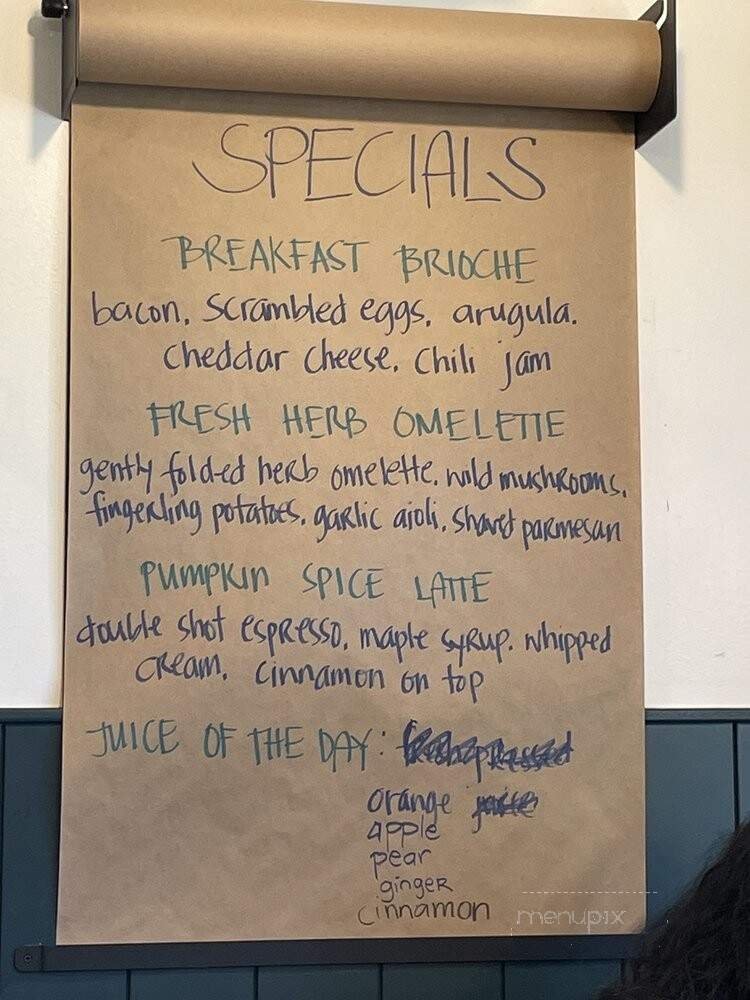 SPECIALS
BREAKFAST BRIOCHE
bacon, scrambled eggs, arugula.
cheddar cheese, chili jam
FRESH HERB OMELETTE
gently folded herb omelette, wild mushrooms,
fingerling potatoes, garlic aioli, shaved parmesan
PUMPKIN SPICE LATTE
double shot espresso, maple syrup, whipped
cream, cinnamon on top
JUICE OF THE DAY:
orange
apple
pear
ginger
cinnamon
menupix